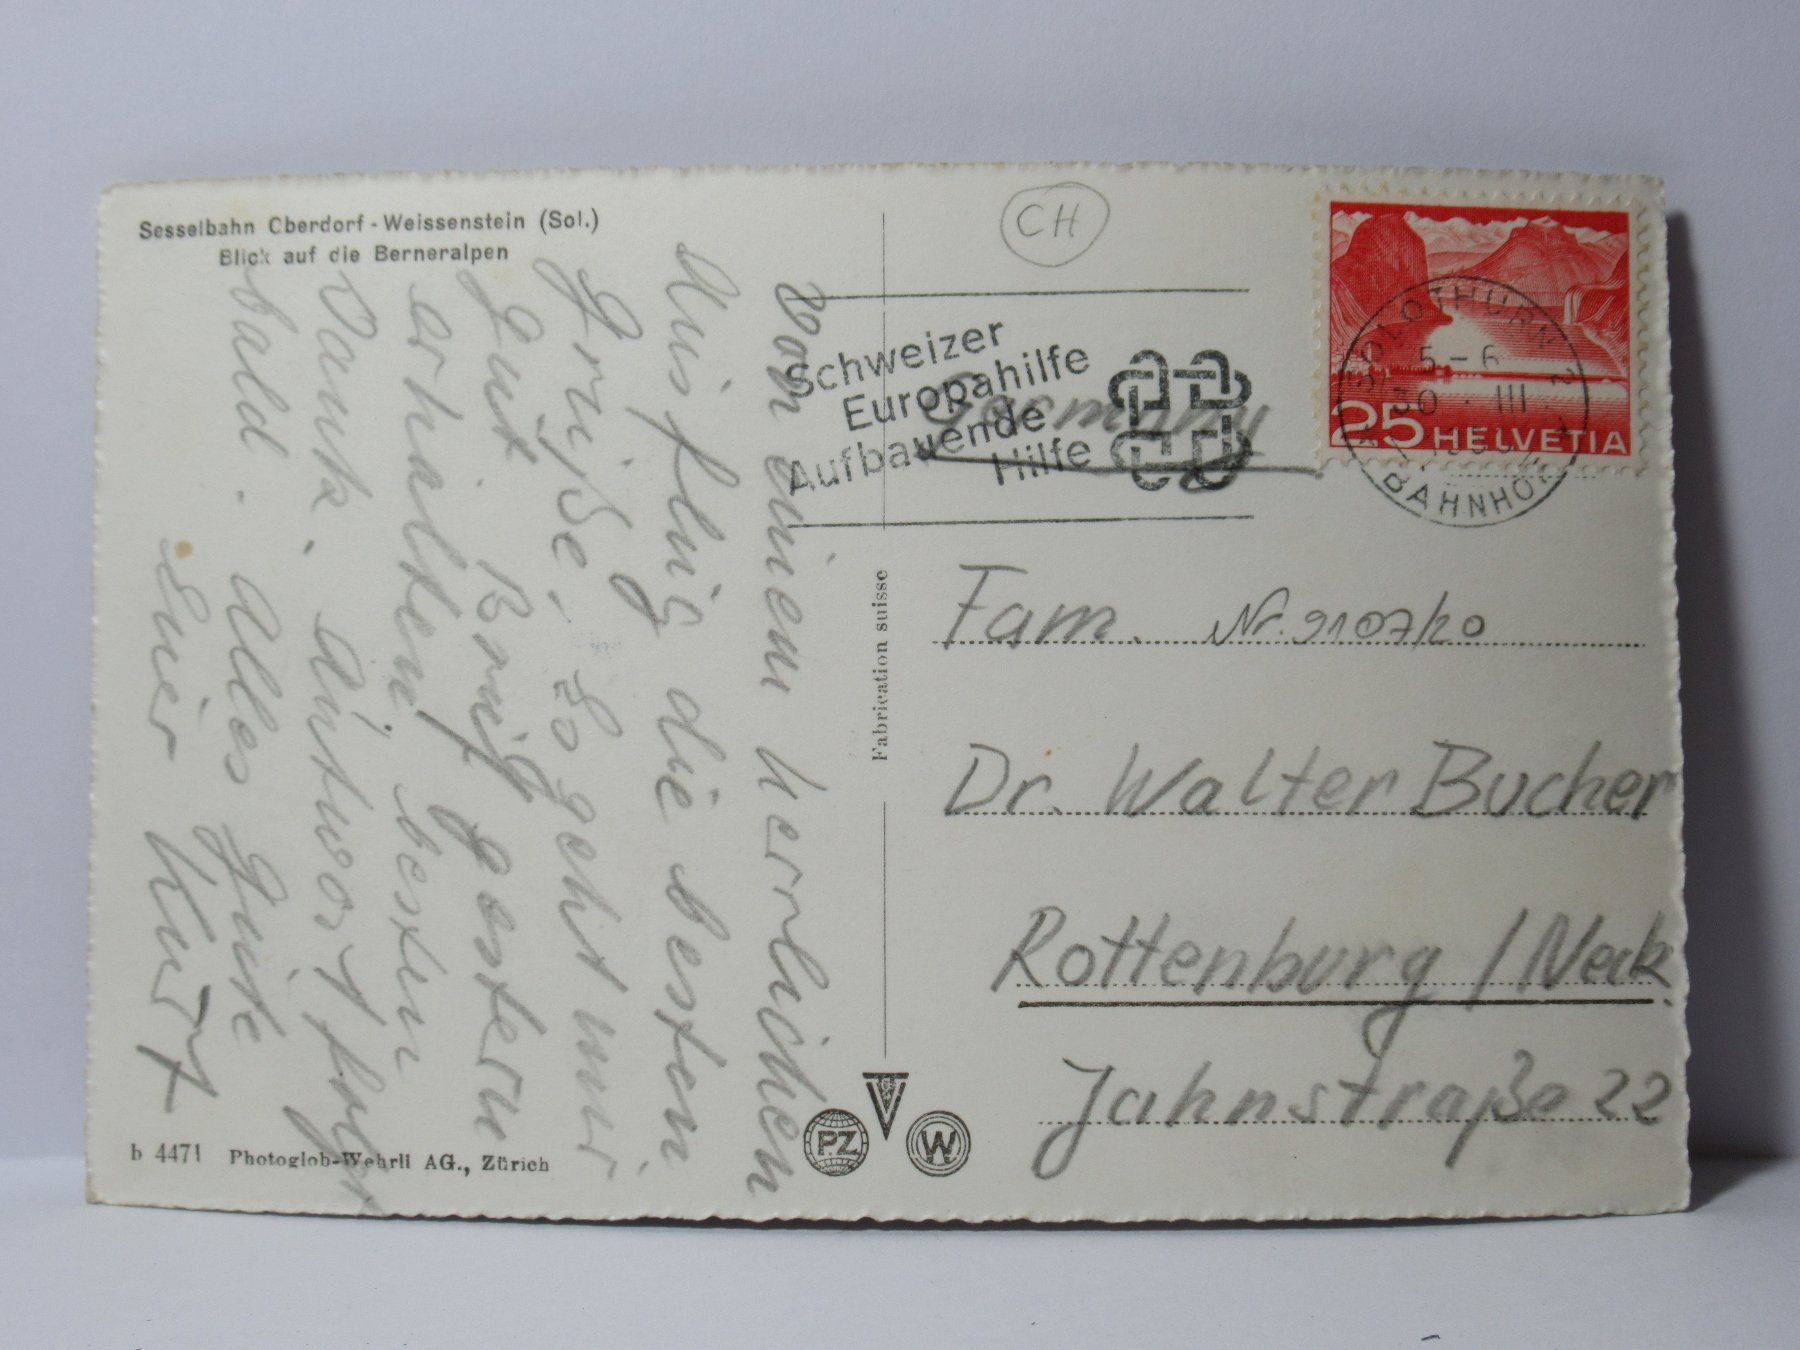 Sesselbahn Oberdorf - Weissenstein (Sol.)
Blick auf die Berneralpen
Von einem herrlichen
Ausflug die besten
Grüße. Es geht mir
gut. Brief gestern
erhalten, besten
Dank. Antwort folgt
bald. Alles Gute
Euer Kurt
b 4471 Photoglob-Wehrli AG., Zürich
Fabrication suisse
PZ
W
CH
Schweizer
Europahilfe
Aufbauende
Hilfe
Germany
25 HELVETIA
SOLOTHURN 2
5-6
III
BAHNHOF
Fam. Nr. 9107/20
Dr. Walter Bucher
Rottenburg / Neck.
Jahnstraße 22